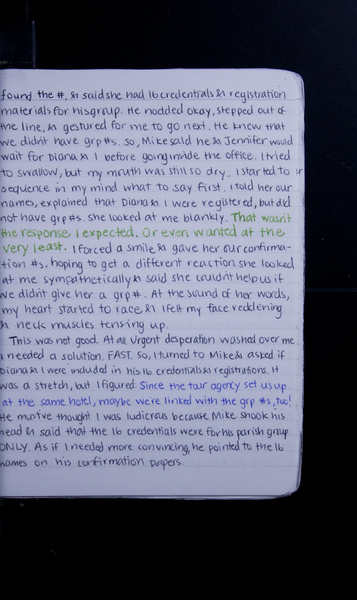 found the #, & said she had 16 credentials & registration
materials for his group. He nodded okay, stepped out of
the line, & gestured for me to go next. He knew that
we didn't have grp #s. So, Mike said he & Jennifer would
wait for Diana & I before going inside the office. I tried
to swallow, but my mouth was still so dry. I started to
sequence in my mind what to say first. I told her our
names, explained that Diana & I were registered, but did
not have grp #s. She looked at me blankly. That wasn't
the response I expected. Or even wanted at the
very least. I forced a smile, & gave her our confirma-
tion #s, hoping to get a different reaction. She looked
at me sympathetically & said she couldn't help us if
we didn't give her a grp #. At the sound of her words,
my heart started to race & I felt my face reddening
& neck muscles tensing up.
This was not good. At all. Urgent desperation washed over me.
I needed a solution. FAST. So, I turned to Mike & asked if
Diana & I were included in his 16 credentials & registrations. It
was a stretch, but I figured: Since the tour agency set us up
at the same hotel, maybe we're linked with the grp #s, too!
He must've thought I was ludicrous because Mike shook his
head & said that the 16 credentials were for his parish group
ONLY. As if I needed more convincing, he pointed to the 16
names on his confirmation papers.